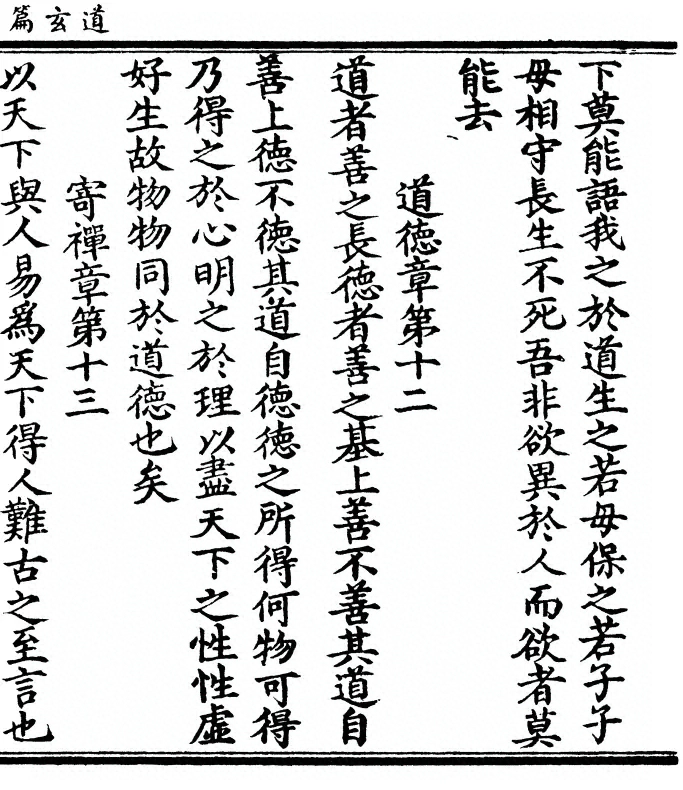 道玄篇
下莫能語我之於道生之若母保之若子子
母相守長生不死吾非欲異於人而欲者莫
能去
道德章第十二
道者善之長德者善之基上善不善其道自
善上德不德其道自德德之所得何物可得
乃得之於心明之於理以盡天下之性性虛
好生故物物同於道德也矣
寄禪章第十三
以天下與人易爲天下得人難古之至言也